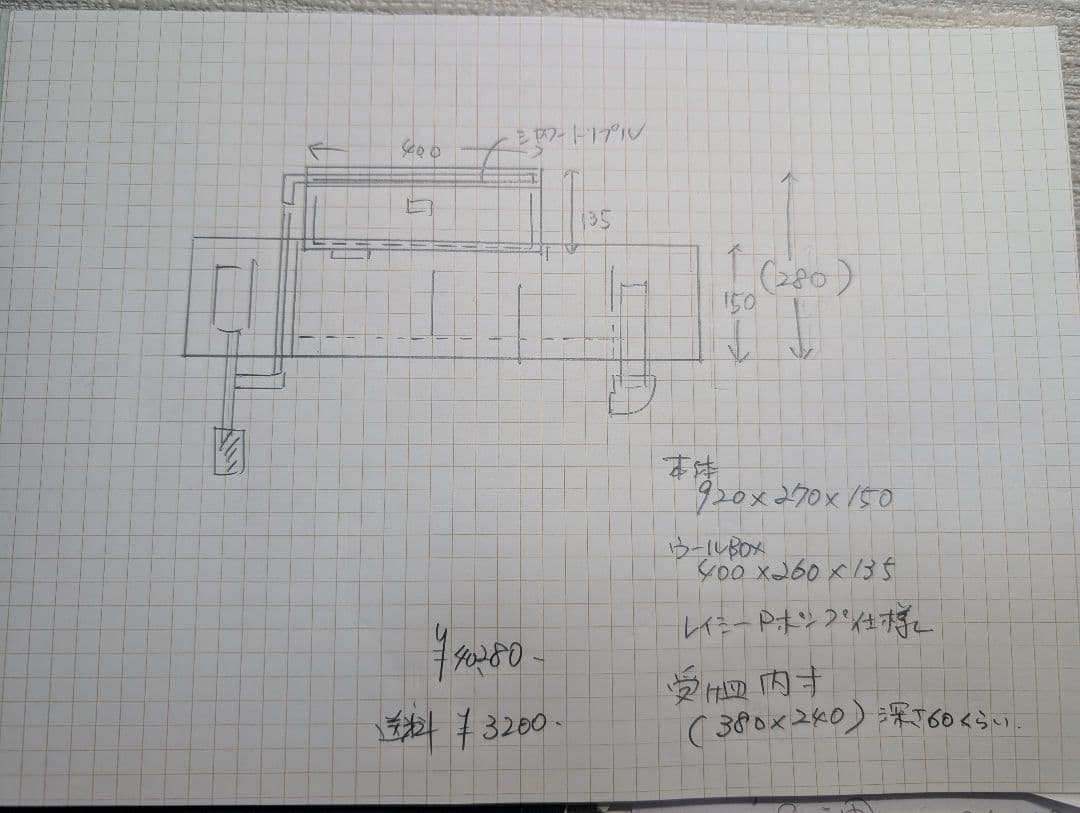 400
135
(280)
150
本体
920×270×150
ウールBOX
400×260×135
レイシーPポンプ仕様
¥40,280-
受け皿内寸
送料 ¥3200-
(380×240)深さ60くらい.